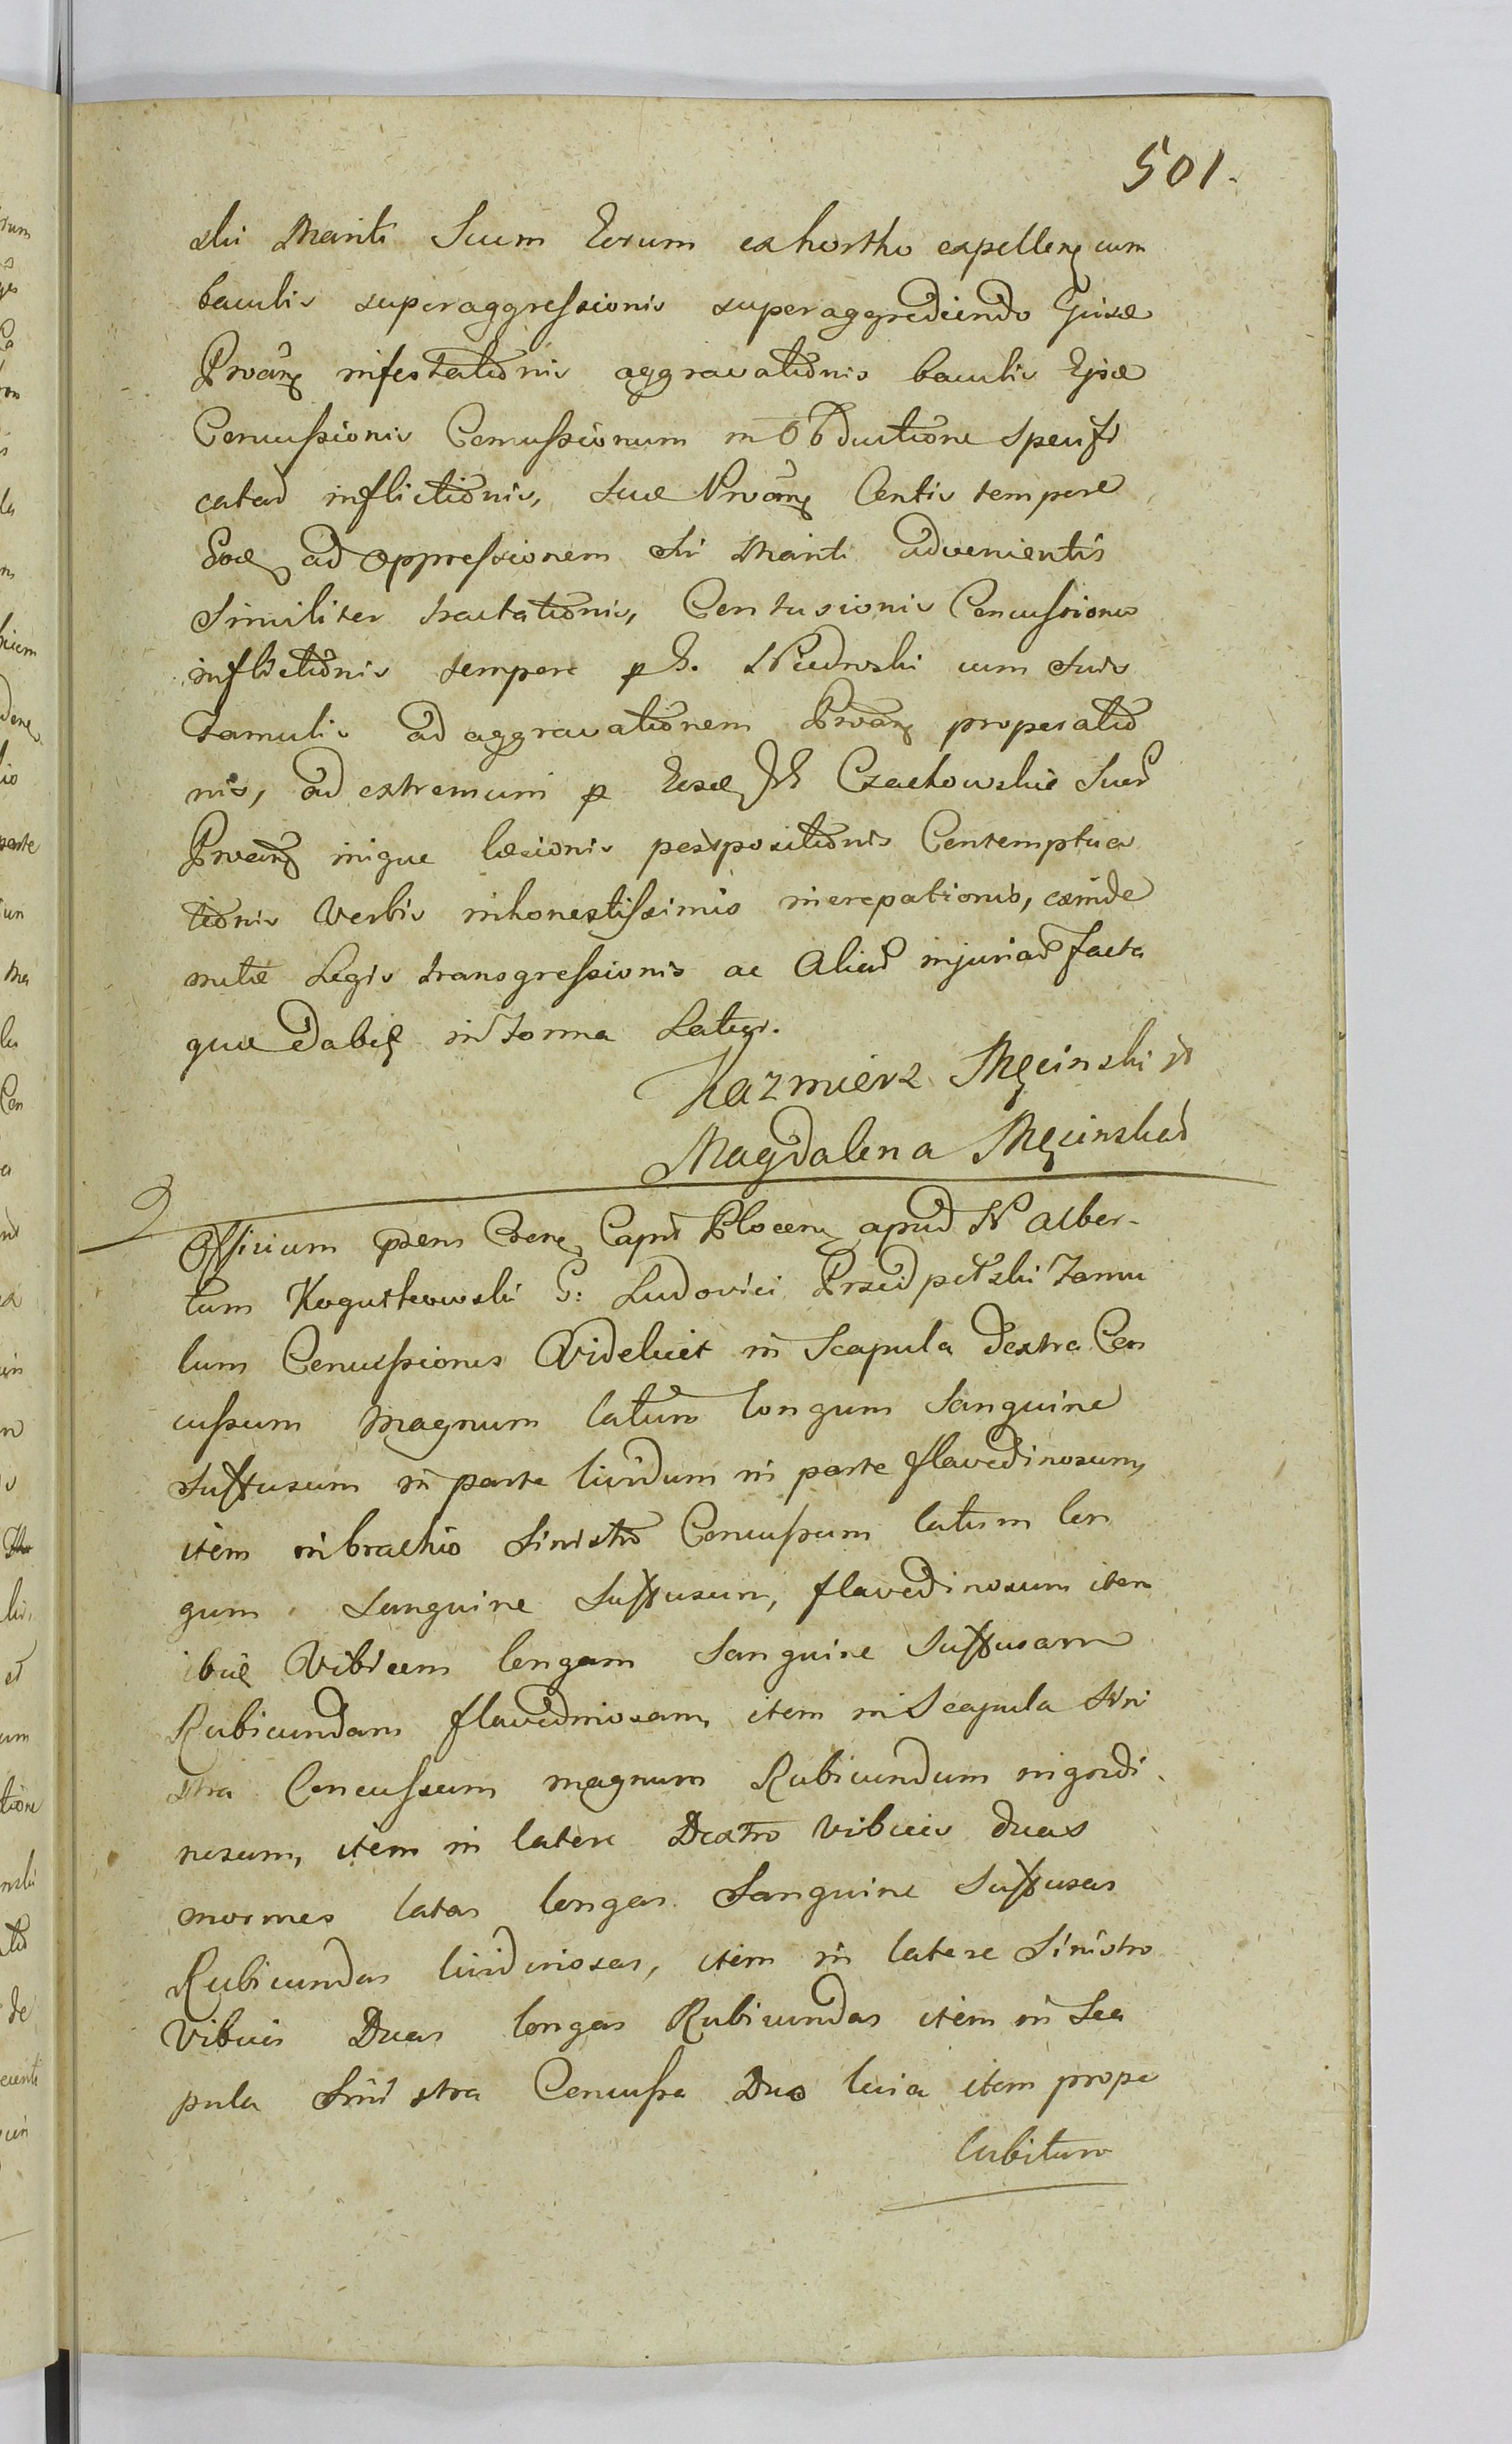 501.
ski Mariti Suum Eorum ex hortho expellenᵭ cum
baculis superaggressionis superaggrediendo Ejusd
Prôtanᵭ infestationis aggravationis baculis Ejsd
Concussionis Concussionum in Obductione specifi
catar inflictionis, suae Prôtanᵭ Centis tempore
ad oppressionem sui Mariti advenientis
Similiter tractationis, Contusionis Concussionis
inflictionis tempore p G. cum suis
Famulis ad aggravationem properatio
nis, ad extremum p Czachowskie
inique laesionis postpositionis Contemptua
tionis Verbis inhonestissimis increpationis, exinde
Legis transgressionis ac Aliar injuriar facta
quae in Forma Latiori.
Kazmierz Męcinski
Magdalena Męcinska
2
Officium praesens apud N Alber-
tum Kogutkowski G: Ludovici Famu
lum Concussionis Videlicet in Scapula dextra Con
cussum Magnum latum longum Sanguine
suffusum in parte lividum in parte flavedinosum,
item in brachio Sinistro Concussum latum lon
gum Sanguine Suffusum, flavedinosum item
ibid Vibicem longam Sanguine Suffusam
Rubicundam flavedinosam, item in Scapula Sini
stra Concussum magnum Rubicundum nigredi
nosum, item in latere Dextro vibices duas
inormes latas longas Sanguine Suffusas
Rubicundas lividinosas, item in latere Sinistro
Vibices Duas longas Rubicundas item in Sca
pula Sinistra Concussa Duo levia item prope
Cubitum